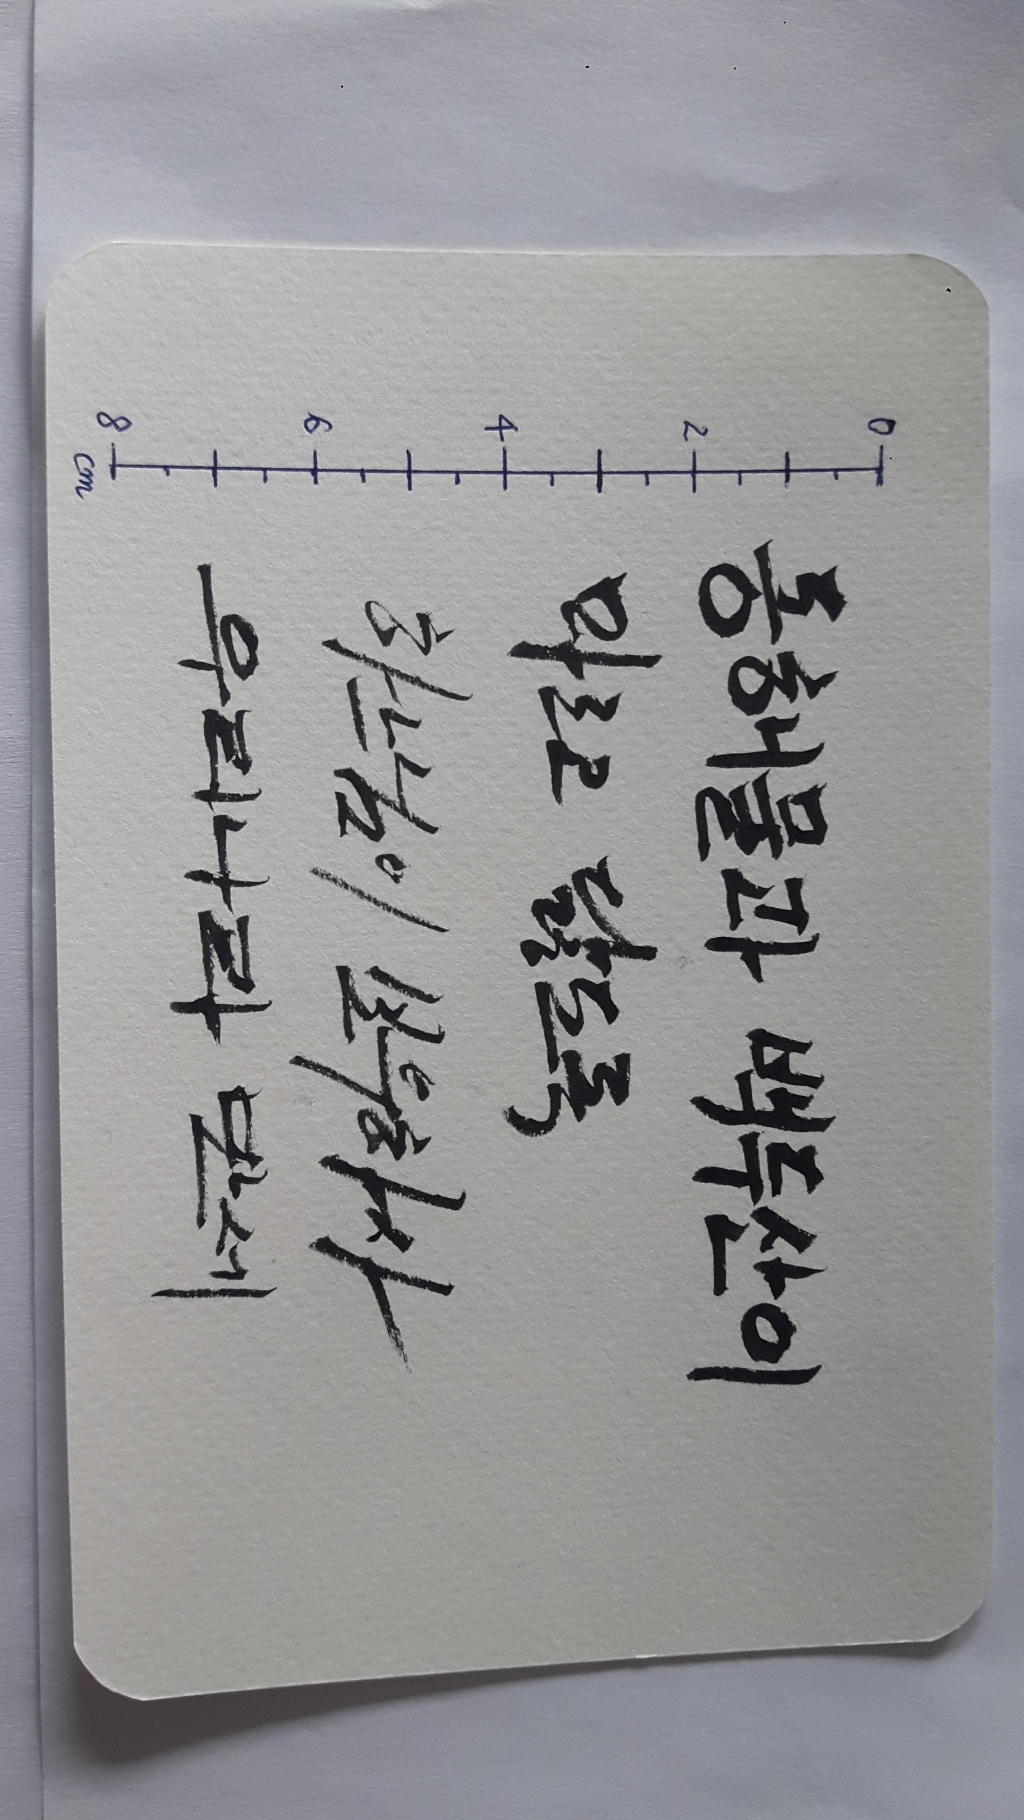 0
2
4
6
8
cm
동해물과 백두산이
마르고 닳도록
하느님이 보우하사
우리나라 만세